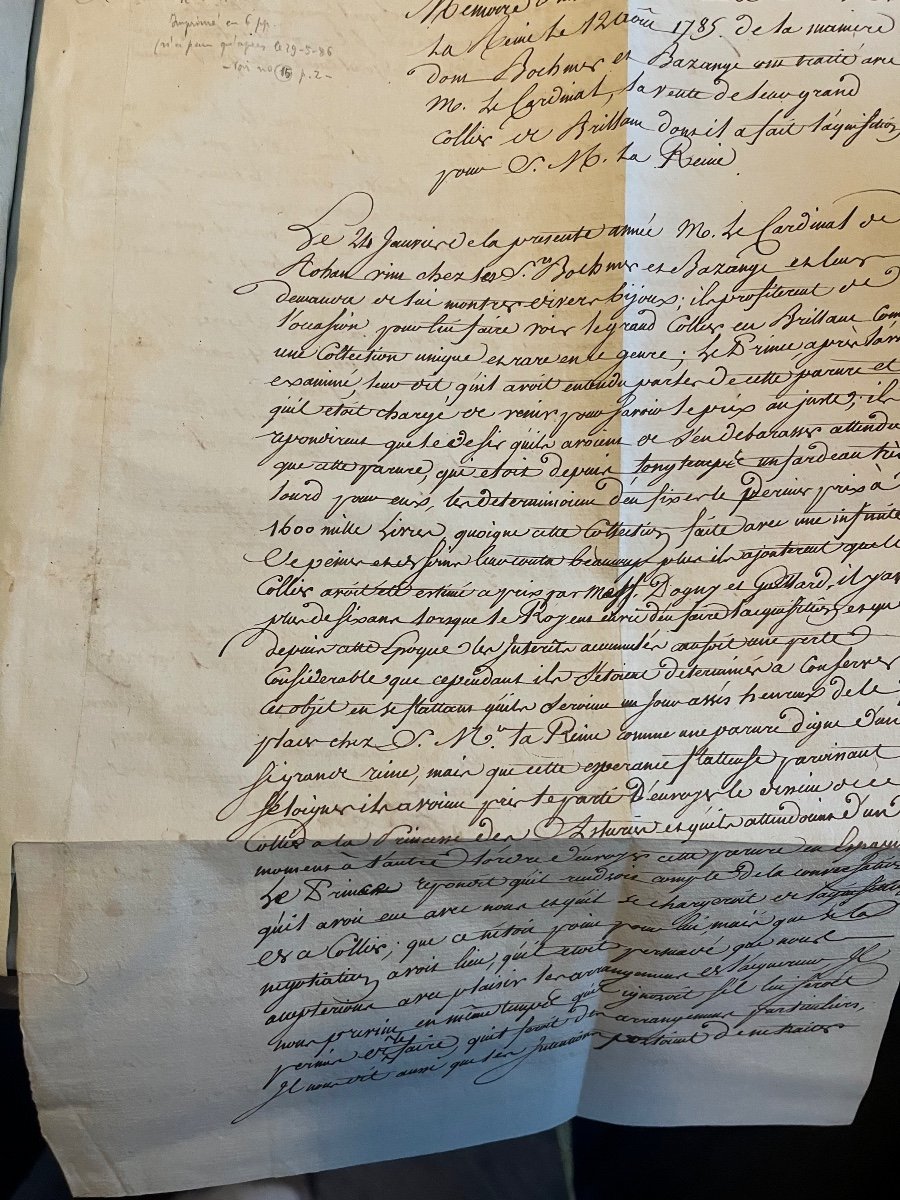 Imprimé en 6 pp.
(n'a paru qu'après le 29-5-86
- Voir no 15 p. 2 -
Mémoire
La Reine le 12 août 1785. de la maniere
dont Boehmer et Bazange ont traité avec
M. Le Cardinal, la vente de leur grand
Collier de Brillans dont il a fait l'aquisition
pour S. M. La Reine
Le 24 Janvier de la presente année M. Le Cardinal de
Rohan vint chez les Srs. Boehmer et Bazange et leur
demanda de lui montrer divers bijoux; ils profiterent de
l'occasion pour lui faire voir le grand Collier en Brillans Com
une Collection unique et rare en ce genre; Le Prince, après l'avoir
examiné, leur dit qu'il avoit entendu parler de cette parure et
qu'il etoit chargé de venir pour savoir le prix au juste; ils
repondirent que le desir qu'ils avoient de s'en debarasser attendu
que cette parure, qui etoit depuis longtemps un fardeau très
lourd pour eux, les determinoient d'en fixer le dernier prix à
1600 mille Livres, quoique cette Collection faite avec une infinité
de peines et de soins leur couta beaucoup plus ils ajouterent que le
Collier avoit été estimé a prix par Mess. Dogny et Guillard, il y a
plus de six ans lorsque le Roy eut envie d'en faire l'acquisition, et que
depuis cette Epoque les Interets accumulés une perte
Considerable que cependant ils s'étoient determinés a Conserver
cet objet en se flattant qu'ils seroient un jour assés heureux de le
placer chez S. M. la Reine comme une parure digne d'une
si grande reine, mais que cette esperance flatteuse paroissant
s'eloigner ils avoient pris le parti d'envoyer le dessin de ce
Collier a la Princesse des Asturies et qu'ils attendoient d'un
moment à l'autre l'ordre d'envoyer cette parure en Espagne
Le Prince repondit qu'il rendroit compte de la conversation
qu'il avoit eue avec nous et qu'il se chargeroit de l'aquisition
de ce Collier; que ce n'etoit point pour lui mais que si la
negotiation avoit lieu, qu'il etoit persuadé, que nous
accepterions avec plaisir les arrangemens de l'aquereur Il
nous prevint en même temps qu'il ignoroit s'il lui seroit
permis de le faire, qu'il feroit des arrangemens particuliers,
Il nous dit aussi que ses Intentions portoient de ne traiter